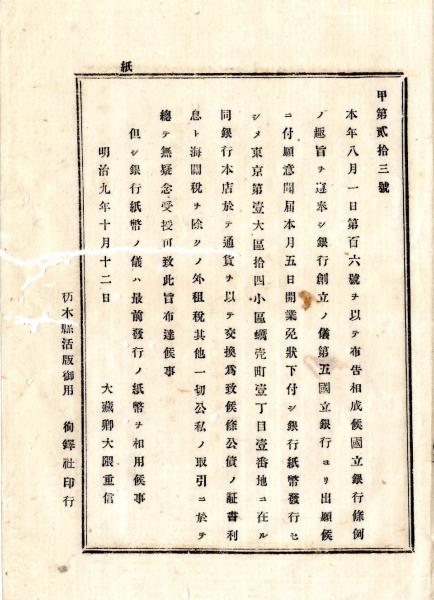 紙
甲第貳拾三號
本年八月一日第百六號ヲ以テ布告相成候國立銀行條例
ノ趣旨ヲ遵奉シ銀行創立ノ儀第五國立銀行ヨリ出願候
ニ付願意聞届本月五日開業免狀下付シ銀行紙幣發行セ
シメ東京第壹大區拾四小區蠣売町壹丁目壹番地ニ在ル
同銀行本店於テ通貨ヲ以テ交換爲致候條公債ノ証書利
息ト海關稅ヲ除クノ外租稅其他一切公私ノ取引ニ於テ
總テ無疑念受授可致此旨布達候事
但シ銀行紙幣ノ儀ハ最前發行ノ紙幣ヲ相用候事
明治九年十月十二日
大藏卿大隈重信
栃木縣活版御用
徇鐸社印行